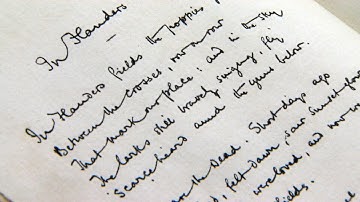 In Flanders
In Flanders fields the poppies
Between the crosses, row on row
That mark our place: and in the sky
The larks still bravely singing, fly
Scarce heard amid the guns below.
are the Dead. Short days ago
d, felt dawn, saw sunset glow
were loved, and now we
fields.